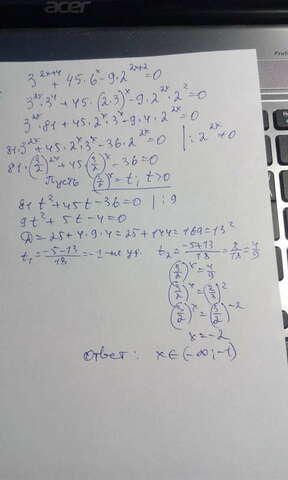 acer
3^{2x+4} + 45·6^x - 9·2^{2x+2} = 0
3^{2x}·3^4 + 45·(2·3)^x - 9·2^{2x}·2^2 = 0
3^{2x}·81 + 45·2^x·3^x - 9·4·2^{2x} = 0
81·3^{2x} + 45·2^x·3^x - 36·2^{2x} = 0 | : 2^{2x} ≠ 0
81·(3/2)^{2x} + 45·(3/2)^x - 36 = 0
Пусть (3/2)^x = t; t > 0
81t^2 + 45t - 36 = 0 | : 9
9t^2 + 5t - 4 = 0
D = 25 + 4·9·4 = 25 + 144 = 169 = 13^2
t_1 = (-5-13)/18 = -1 - не уд. t_2 = (-5+13)/18 = 8/18 = 4/9
(3/2)^x = 4/9
(3/2)^x = (2/3)^2
(3/2)^x = (3/2)^{-2}
x = -2
Ответ: x ∈ (-∞; -1)